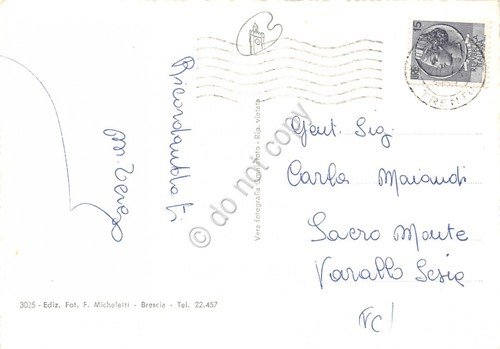 Ricordandoti
15
TRENTO
Gent. Sig.
Carla
Sacro Monte
Varallo Sesia
VC
Vera Fotografia Rip. vietata
do not copy
3025 - Ediz. Fot. F. Micheletti - Brescia - Tel. 22.457